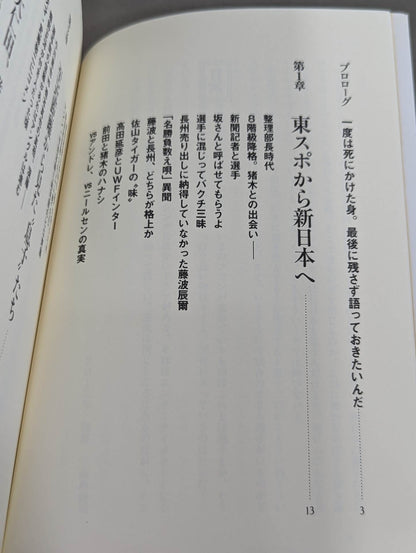 プロローグ 一度は死にかけた身。最後に残さず語っておきたいんだ 3
第1章 東スポから新日本へ 13
整理部長時代
8階級降格。猪木との出会い――
新聞記者と選手
坂さんと呼ばせてもらうよ
選手に混じってバクチ三昧
長州売り出しに納得していなかった藤波辰爾
「名勝負数え唄」異聞
藤波と長州、どちらが格上か
佐山タイガーの“味”
高田延彦とUWFインター
前田と猪木のハナシ
vsアンドレ、vsニールセンの真実